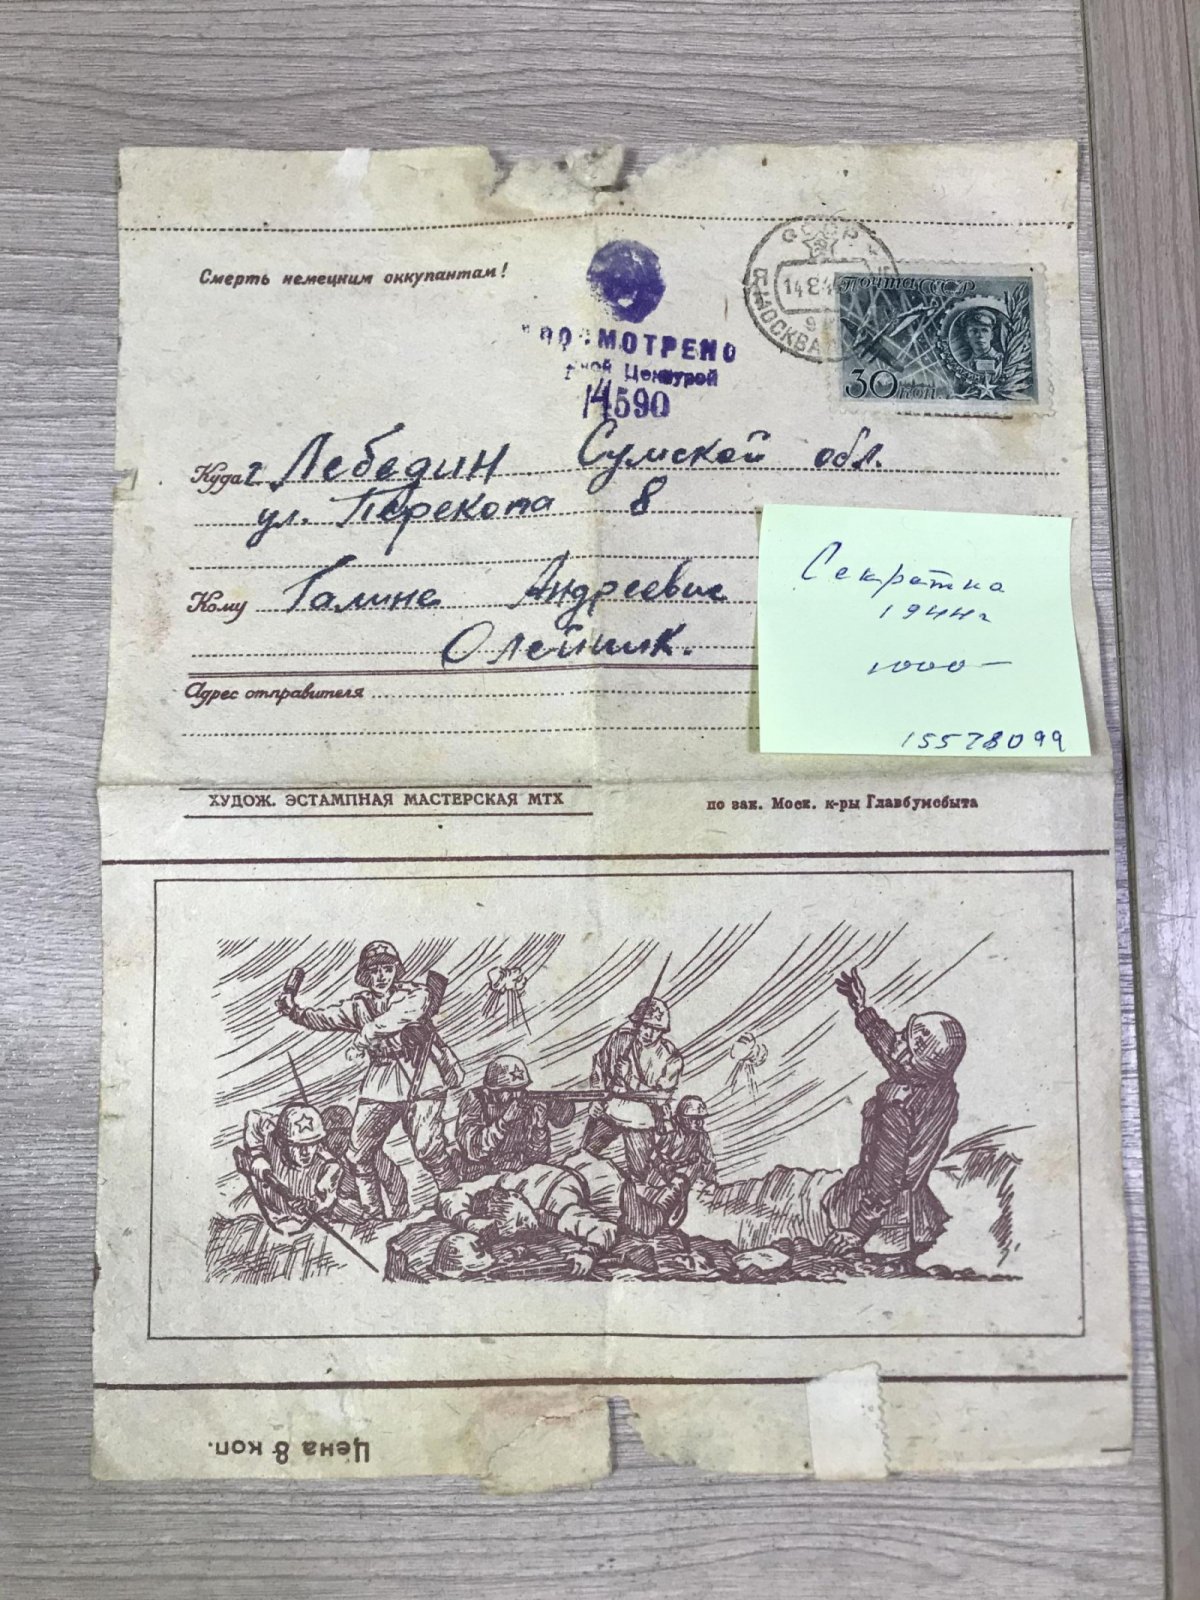 Смерть немецким оккупантам!
СССР
МОСКВА
14 8 4
ПОЧТА СССР
30 коп.
ПРОСМОТРЕНО
Цензурой
14590
Куда г. Лебедин Сумской обл.
ул. Перекопа 8
Кому Галине Андреевне
Олейник.
Адрес отправителя
Секретка
1944г
1000-
15578099
ХУДОЖ. ЭСТАМПНАЯ МАСТЕРСКАЯ МТХ
по зак. Моск. к-ры Главбумсбыта
Цена 8 коп.